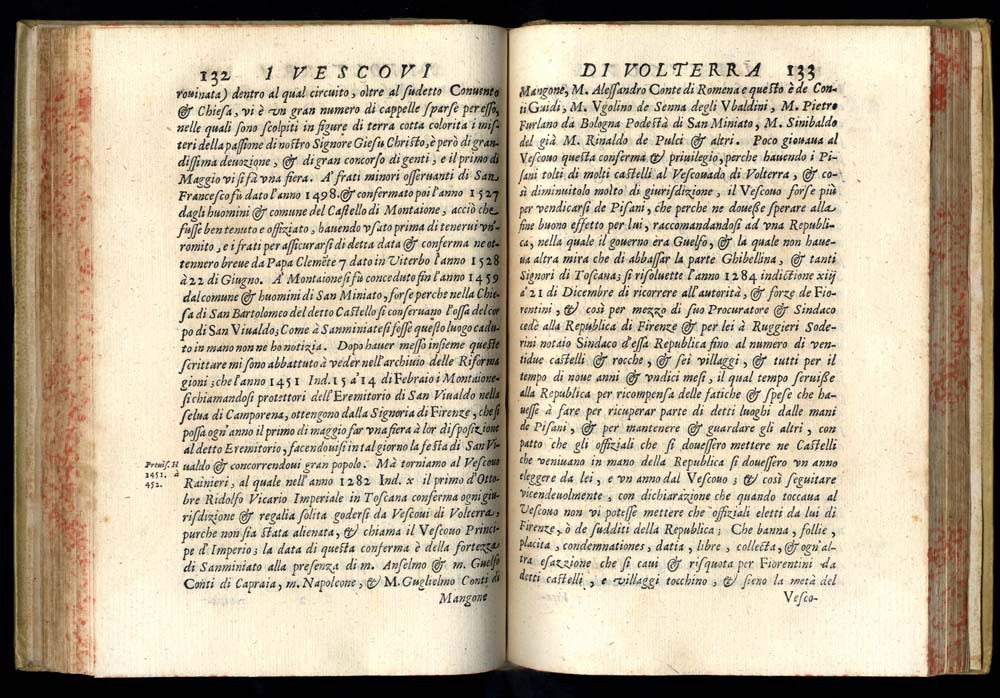 132 I VESCOVI
rouinata) dentro al qual circuito, oltre al sudetto Conuento
& Chiesa, vi è vn gran numero di cappelle sparse per esso,
nelle quali sono scolpiti in figure di terra cotta colorita i mis-
teri della passione di nostro Signore Giesu Christo, è però di gran-
dissima deuozione, & di gran concorso di genti, e il primo di
Maggio vi si fà vna fiera. A' frati minori osseruanti di San
Francesco fù dato l'anno 1498. & confermato poi l'anno 1527
dagli huomini & comune del Castello di Montaione, acciò che
fusse ben tenuto e offiziato, hauendo vsato prima di tenerui vn'
romito, e i frati per assicurarsi di detta data & conferma ne ot-
tennero breue da Papa Clemẽte 7 dato in Viterbo l'anno 1528
à 22 di Giugno. A' Montaione si fù conceduto fin l'anno 1459
dal comune & huomini di San Miniato, forse perche nella Chie-
sa di San Bartolomeo del detto Castello si conseruano l'ossa del cor
po di San Viualdo; Come à Sanminiatesi fosse questo luogo cadu-
to in mano non ne ho notizia. Dopo hauer messo insieme queste
scritture mi sono abbattuto à veder nell'archiuio delle Riforma
gioni; che l'anno 1451 Ind. 15 a' 14 di Febraio i Montaione-
si chiamandosi protettori dell'Eremitorio di San Viualdo nella
selua di Camporena, ottengono dalla Signoria di Firenze, che si
possa ogn'anno il primo di maggio far vna fiera à lor disposizione
al detto Eremitorio, facendouisi in tal giorno la festa di San Vi-
ualdo & concorrendoui gran popolo. Mà torniamo al Vescouo
Prouis. H
1451. à
452.
Rainieri, al quale nell'anno 1282 Ind. x il primo d'Otto-
bre Ridolfo Vicario Imperiale in Toscana conferma ogni giu-
risdizione & regalia solita godersi da Vescoui di Volterra,
purche non sia stata alienata, & chiama il Vescouo Princi-
pe d'Imperio; la data di questa conferma è della fortezza
di Sanminiato alla presenza di m. Anselmo & m. Guelfo
Conti di Capraia, m. Napoleone, & M. Guglielmo Conti di
Mangone
DI VOLTERRA 133
Mangone, M. Alessandro Conte di Romena e questo è de Con-
ti Guidi, M. Vgolino de Senna degli Vbaldini, M. Pietro
Furlano da Bologna Podestà di San Miniato, M. Sinibaldo
del già M. Rinaldo de Pulci & altri. Poco giouaua al
Vescouo questa conferma & priuilegio, perche hauendo i Pi-
sani tolti di molti castelli al Vescouado di Volterra, & co-
sì diminuitolo molto di giurisdizione, il Vescouo forse più
per vendicarsi de Pisani, che perche ne douesse sperare alla
fine buono effetto per lui, raccomandandosi ad vna Republi-
ca, nella quale il gouerno era Guelfo, & la quale non haue-
ua altra mira che di abbassar la parte Ghibellina, & tanti
Signori di Toscana; si risoluette l'anno 1284 indictione xiij
a' 21 di Dicembre di ricorere all'autorità, & forze de Fio-
rentini, & così per mezzo di suo Procuratore & Sindaco
cedè alla Republica di Firenze & per lei à Ruggieri Sode-
rini notaio Sindaco d'essa Republica fino al numero di ven-
tidue castelli & rocche, & sei villaggi, & tutti per il
tempo di noue anni & vndici mesi, il qual tempo seruisse
alla Republica per ricompensa delle fatiche & spese che ha-
uesse à fare per ricuperar parte di detti luoghi dalle mani
de Pisani, & per mantenere & guardare gli altri, con
patto che gli offiziali che si douessero mettere ne Castelli
che veniuano in mano della Republica si douessero vn anno
eleggere da lei, e vn anno dal Vescouo; & così seguitare
vicendeuolmente, con dichiarazione che quando toccaua al
Vescouo non vi potesse mettere che offiziali eletti da lui di
Firenze, ò de sudditi della Republica; Che banna, follie,
placita, condemnationes, datia, libre, collecta, & ogn'al-
tra esazzione che si caui & risquota per Fiorentini da
detti castelli, e villaggi tocchino, & sieno la metà del
Vesco-